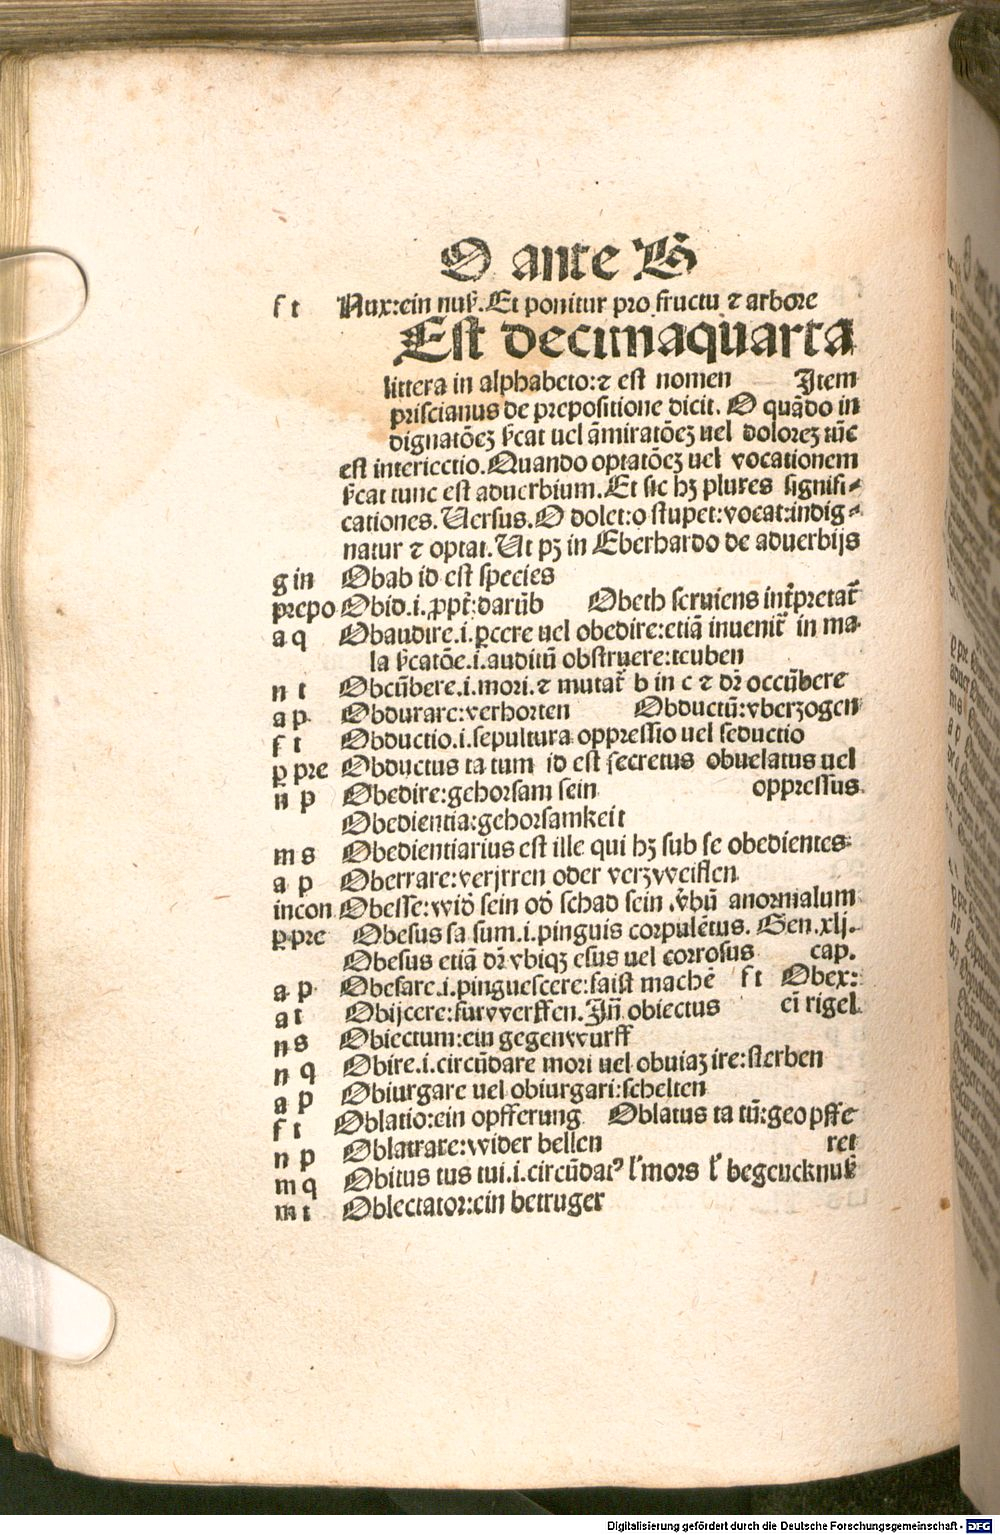 O ante B
f t Nux:ein nuß.Et ponitur pro fructu ⁊ arbore
Est decimaquarta
littera in alphabeto:⁊ est nomen Item
priscianus de prepositione dicit. O quãdo in
dignatõeʒ ẜcat uel ãmiratõeʒ uel doloreʒ tũc
est interiectio.Quando optatõeʒ uel vocationem
ẜcat tunc est aduerbium.Et sic hʒ plures signifi⸗
cationes.Uersus.O dolet:o stupet:vocat:indig⸗
natur ⁊ optat.Ut pʒ in Eberhardo de aduerbijs
g in Obab id est species
prepo Obid.i.ꝓpt̃:darũb Obeth seruiens int̃pretat̃
a q Obaudire.i.ꝑcere uel obedire:etiã inuenit̃ in ma
la ẜcatõe.i.auditũ obstruere:teuben
n t Obcũbere.i.mori.⁊ mutat̃ b in c ⁊ dr̃ occũbere
a p Obdurare:verhorten Obductũ:vberzogen
f t Obductio.i.sepultura oppressio uel seductio
ꝑ pre Obductus ta tum id est secretus obuelatus uel
n p Obedire:gehorsam sein oppressus
Obedientia:gehorsamkeit
m s Obedientiarius est ille qui hʒ sub se obedientes
a p Oberrare:verjrren oder verzweiflen
incon Obesse:wid̕ sein od̕ schad sein .v̕bũ anormalum
ꝑ pre Obesus sa sum.i.pinguis corpulẽtus. Gen.xlj.
Obesus etiã dr̃ vbiqʒ esus uel corrosus cap.
a p Obesare.i.pinguescere:faist machẽ f t Obex:
a t Obijcere:furwerffen.Iñ obiectus eĩ rigel
n s Obiectum:ein gegenwurff
n q Obire.i.circũdare mori uel obuiaʒ ire:sterben
a p Obiurgare uel obiurgari:schelten
f t Oblatio:ein opfferung Oblatus ta tũ:geopffe
n p Oblatrare:wider bellen ret
m q Obitus tus tui.i.circũdatꝰ l̕ mors l̕ begeucknuß
m t Oblectator:ein betruger
Digitalisierung gefördert durch die Deutsche Forschungsgemeinschaft - DFG